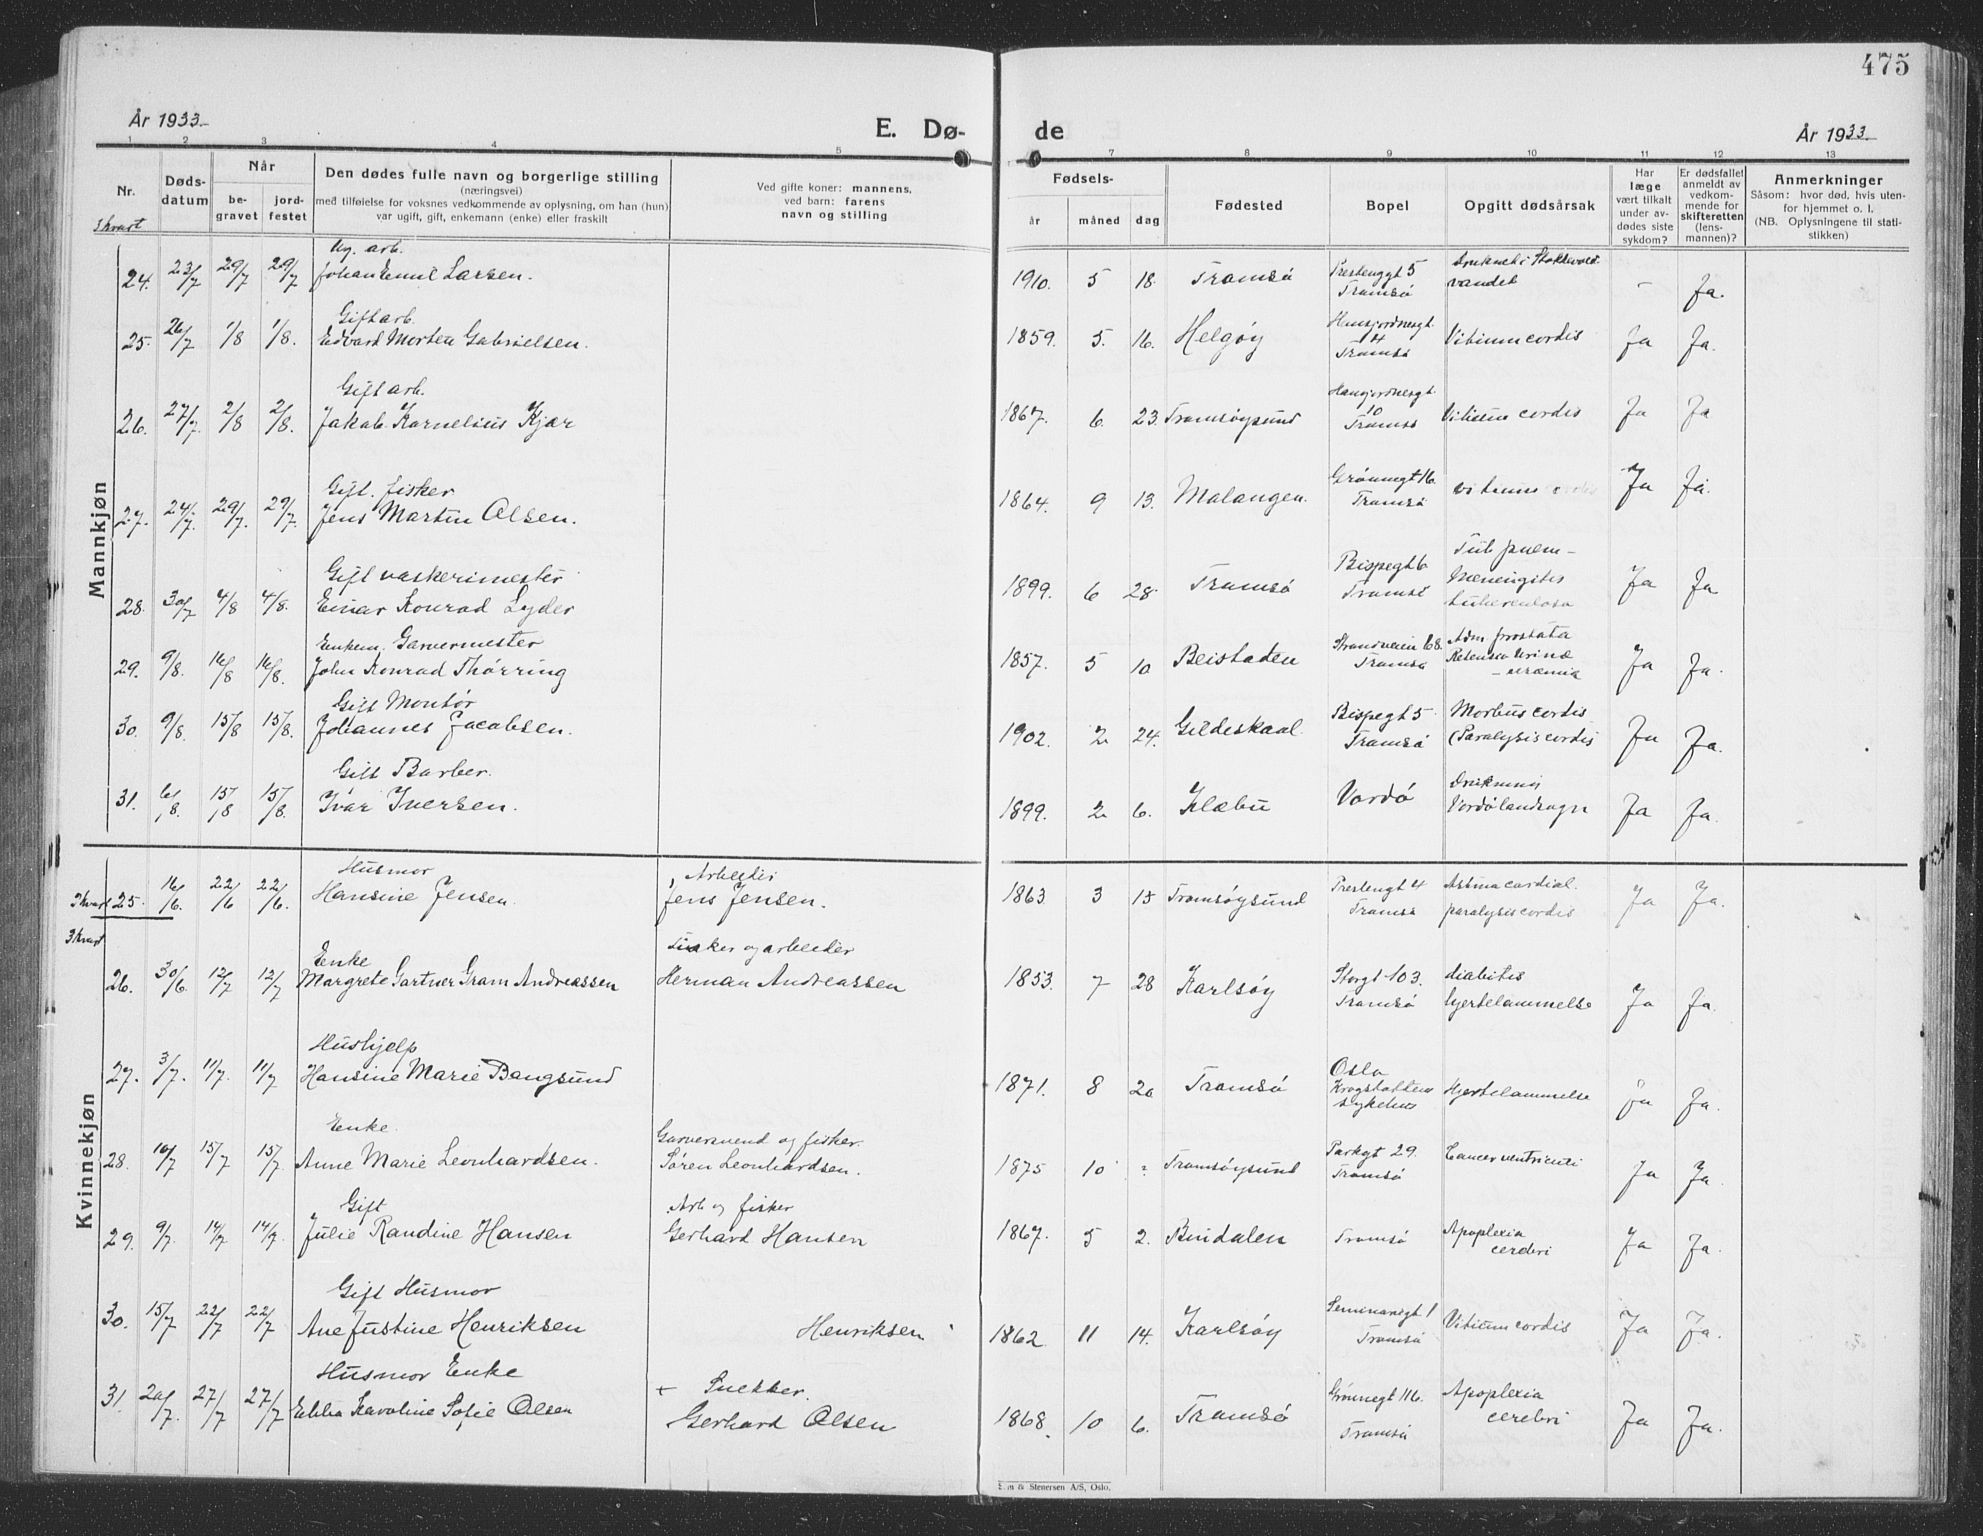 475
År 1933
E. Dø-
de
År 1933
1 2 3 4 5 7 8 9 10 11 12 13
Nr.
Døds-
datum
Når
be-
gravet
jord-
festet
Den dødes fulle navn og borgerlige stilling
(næringsvei)
med tilføielse for voksnes vedkommende av oplysning, om han (hun)
var ugift, gift, enkemann (enke) eller fraskilt
Ved gifte koner: mannens,
ved barn: farens
navn og stilling
Fødsels-
år måned dag
Fødested
Bopel
Opgitt dødsårsak
Har
læge
vært tilkalt
under av-
dødes siste
sykdom?
Er dødsfallet
anmeldt av
vedkom-
mende for
skifteretten
(lens-
mannen)?
Anmerkninger
Såsom: hvor død, hvis uten-
for hjemmet o. l.
(NB. Oplysningene til stati-
stikken)
3 kvart
Mannkjøn
Ug. arb.
24. 23/7 29/7 29/7 Johan Emil Larsen. 1910. 5 18. Tromsø Prestenggt 5 Tromsø vandet - Ja.
Gift arb.
25. 26/7 1/8 1/8. Edvard Morten Gabrielsen. 1859. 5. 16. Helgøy 14 Tromsø Vitium cordis Ja Ja.
Gift arb.
26. 27/7. 2/8 2/8. Jakob Kornelius Kjær 1867. 6. 23. Tromsøysund 10 Tromsø Vitium cordis Ja Ja
Gift. fisker
27. 24/7. 29/7. 29/7. Jens Martin Olsen. 1864. 9 13. Malangen. Grønnegt 16. Tromsø vitium cordis Ja Ja.
Gift vaskerimester
28. 30/7 4/8 4/8. Einar Konrad Lyder 1899. 6 28. Tromsø Bispegt 6 Tromsø Meningitis tuberculosa Ja Ja
Enkem. Garvermester
29. 9/8. 16/8 16/8. John Konrad Thørring 1857. 5 10 Beistaden Strandveien 68. Tromsø prostata Retensio Urinæ - uræmia Ja Ja.
Gift Montør
30. 9/8. 15/8 15/8. Johannes Jacobsen. 1902. 2 24. Gildeskaal Bispegt 5 Tromsø Morbus cordis (Paralysis cordis Ja Ja.
Gift Barber.
31. 6/8. 15/8 15/8. Ivar Iversen. 1899. 2 6. Klæbu Vardø Drukning Vardø landsogn Ja Ja.
Kvinnekjøn
Husmor Arbeider
2 kvart 25. 16/6. 22/6 22/6. Hansine Jensen. Jens Jensen. 1863 3 15 Tromsøysund Prestengt 4 Tromsø Astma cardial. paralysis cordis Ja Ja.
3 kvart
Enke og arbeider
26. 30/6. 12/7 12/7 Margrete Gartner Gram Andreassen Herman Andreassen 1853. 7 28 Karlsøy Storgt 103. Tromsø diabetis hjertelammelse Ja Ja.
Hushjelp
27. 3/7. 11/7. 11/7 Hansine Marie Bangsund 1871. 8 20 Tromsø Oslo Krogstøtten sykehus Hjertelammelse Ja Ja.
Enke. Garversvend og fisker.
28. 10/7 15/7 15/7 Anne Marie Leonhardsen. Søren Leonhardsen. 1875 10 ? Tromsøysund Parkgt 29. Tromsø Cancer ventriculi Ja Ja.
Gift Arb og fisker
29. 9/7. 14/7 14/7. Julie Randine Hansen Gerhard Hansen 1867. 5 2. Bindalen Tromsø Apoplexia cerebri Ja Ja.
Gift Husmor
30. 15/7 22/7 22/7 Ane Justine Henriksen Henriksen 1862 11 14. Karlsøy Seminariegt 1 Tromsø Vitium cordis Ja Ja.
Husmor Enke + Snekker.
31. 20/7. 27/7 27/7 Ebba Karoline Sofie Olsen Gerhard Olsen 1868. 10 6. Tromsø Grønnegt 116. Tromsø Apoplexia cerebri Ja Ja.
& Stenersen A/S, Oslo.